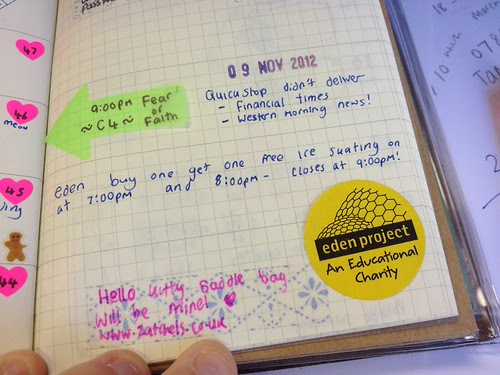 47
46
meow
45
44
09 NOV 2012
9:00pm Fear
~ C4 ~ or
Faith
Quickstop didn't deliver
- Financial times
- Western morning news!
eden buy one get one free ice skating on
at 7:00pm and 8:00pm - closes at 9:00pm!
eden project
An Educational
Charity
Hello Kitty Saddle bag
Will be mine!
www.zatchels.co.uk
18 -
10 mins